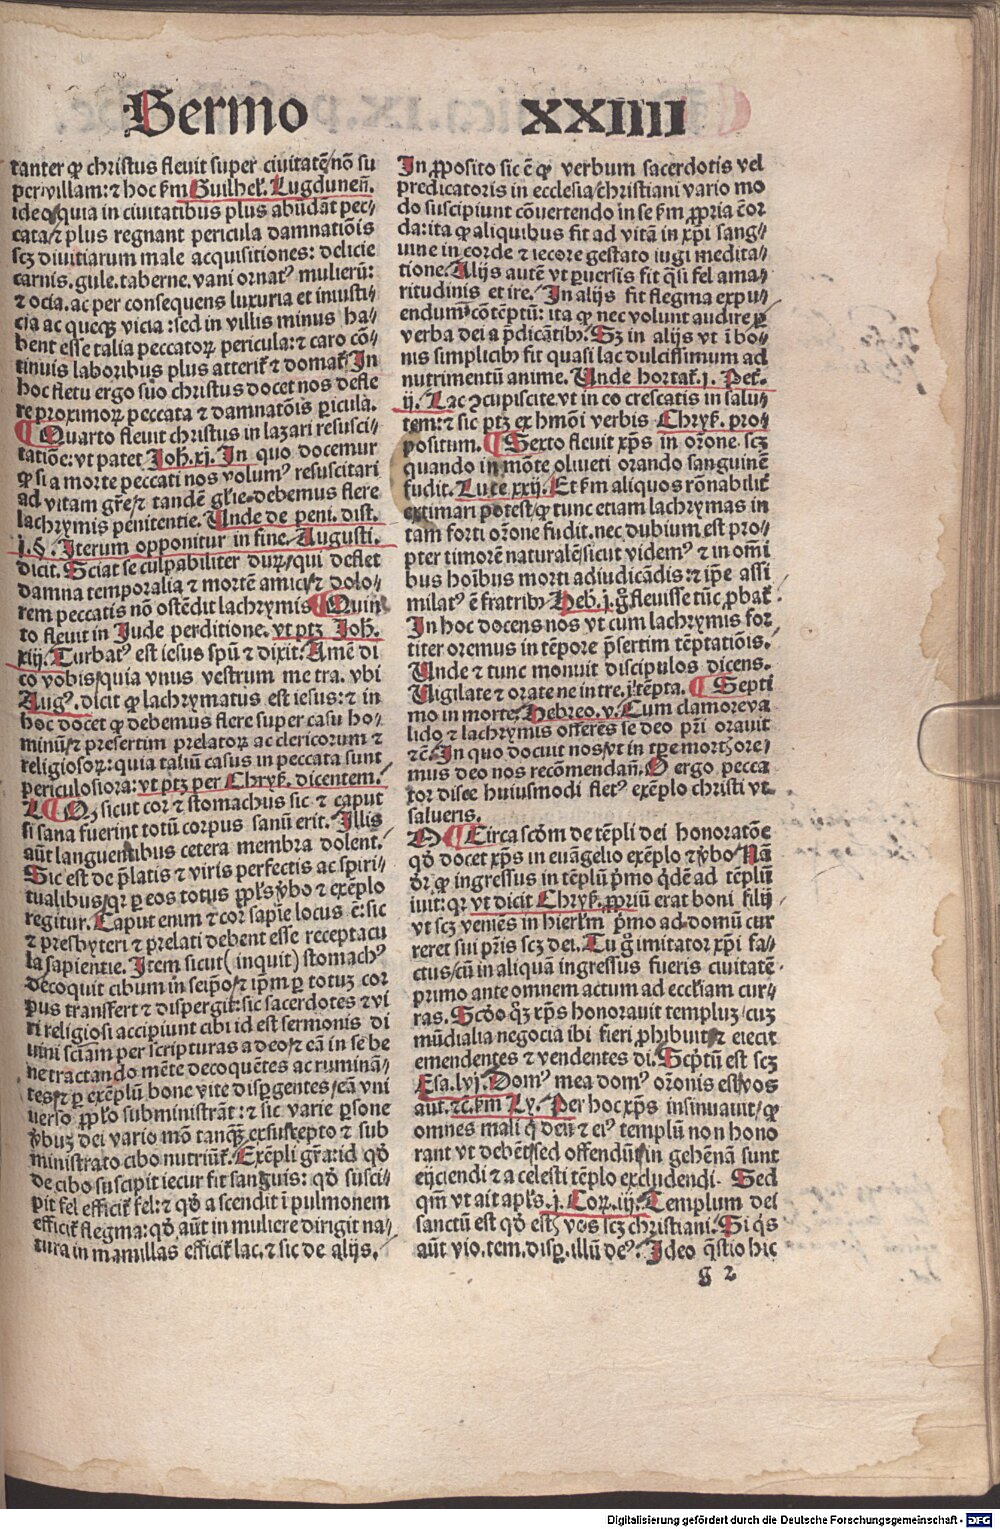 Sermo XXIIII
tanter qꝫ christus fleuit super ciuitatē/nō su
per villam: ⁊ hoc ẜm Guilheł. Lugduneñ.
ideo/quia in ciuitatibus plus abūdāt pec/
cata/⁊ plus regnant pericula damnatiōis
scꝫ diuitiarum male acquisitiones: delicie
carnis. gule. taberne. vani ornatꝰ mulierū:
⁊ ocia. ac per consequens luxuria et iniusti/
cia ac quecꝫ vicia: sed in villis minus ha/
bent esse talia peccatoꝝ pericula: ⁊ caro cō/
tinuis laboribus plus atteriť ⁊ domať. In
hoc fletu ergo suo christus docet nos defle
re proximoꝝ peccata ⁊ damnatōis ꝑicula.
¶ Quarto fleuit christus in lazari resusci/
tatiōe: vt patet Joh̄. xj. In quo docemur
ꝙ si a morte peccati nos volumꝰ resuscitari
ad vitam gr̄e/⁊ tandē gl̄ie debemus flere
lachrymis penitentie. Unde de peni. dist.
j. §. Iterum opponitur in fine. Augusti.
dicit. Sciat se culpabiliter duꝝ/qui deflet
damna temporalia ⁊ mortē amici/⁊ dolo/
rem peccatis nō ostēdit lachrymis ¶ Quin
to fleuit in Jude perditione. vt ptꝫ Joh̄.
xiij. Turbatꝰ est iesus spū ⁊ dixit: Amē di
co vobis/quia vnus vestrum me tra. vbi
Augꝰ. dicit ꝙ lachrymatus est iesus: ⁊ in
hoc docet ꝙ debemus flere super casu ho/
minū/⁊ presertim prelatoꝝ ac clericorum ⁊
religiosoꝝ: quia taliū casus in peccata sunt
periculosiora: vt ptꝫ per Chryẜ. dicentem.
L ¶ Qꝫ sicut cor ⁊ stomachus sic ⁊ caput
si sana fuerint totū corpus sanū erit. Illis
aūt languentibus cetera membra dolent.
Sic est de p̄latis ⁊ viris perfectis ac spiri/
tualibus/qꝛ ꝑ eos totus ꝓpl̄s v̄bo ⁊ exēplo
regitur. Caput enim ⁊ cor sapīe locus ē: sic
⁊ presbyteri ⁊ prelati debent esse receptacu
la sapientie. Item sicut (inquit) stomachꝰ
decoquit cibum in seipō/⁊ ip̄m ꝑ totuꝫ cor
pus transfert ⁊ dispergit: sic sacerdotes ⁊ vi
ri religiosi accipiunt cibū id est sermonis di
uini sciam per scripturas a deo/⁊ eā in se be
ne tractando mēte decoquētes ac ruminā/
tes/⁊ ꝑ exēplū bone vite disꝑgentes/eā vni
uerso ꝓpl̄o subministrāt: ⁊ sic varie ꝑsone
v̄buꝫ dei vario mō tanqꝫ exsuscepto ⁊ sub
ministrato cibo nutriunť. Exēpli gr̄a: id qd̄
de cibo suscipit iecur fit sanguis: qd̄ susci/
pit fel efficiť fel: ⁊ qd̄ ascendit ī pulmonem
efficiť flegma: qd̄ aūt in muliere dirigit na/
tura in mamillas efficiť lac. ⁊ sic de alijs.
In ꝓposito sic ē ꝙ verbum sacerdotis vel
predicatoris in ecclesia/christiani vario mo
do suscipiunt cōuertendo in se ẜm ꝓpria cor
da: ita ꝙ aliquibus fit ad vitā in xp̄i sang/
uine in corde ⁊ iecore gestato iugi medita/
tione. Alijs autē vt ꝑuersis fit q̄si fel ama/
ritudinis et ire. In alijs fit flegma expu/
endum/cōtēptū: ita ꝙ nec volunt audire ꝑ
verba dei a p̄dicātibꝰ. Sꝫ in alijs vt ī bo/
nis simplicibꝰ fit quasi lac dulcissimum ad
nutrimentū anime. Unde hortať. j. Peť.
ij. Lac ꝯcupiscite vt in eo crescatis in salu/
tem: ⁊ sic ptꝫ ex hmōi verbis Chryẜ. pro/
positum. ¶ Sexto fleuit xp̄s in or̄one scꝫ
quando in mōte oliueti orando sanguinē
fudit. Luce xxij. Et ẜm aliquos rōnabilił
extimari potest/ꝙ tunc etiam lachrymas in
tam forti or̄one fudit. nec dubium est pro/
pter timorē naturalē/sicut videmꝰ ⁊ in omī
bus hoībus morti adiudicādis: ⁊ ip̄e assi
milatꝰ ē fratribꝰ Heb. j. gͦ fleuisse tūc ꝓbať.
In hoc docens nos vt cum lachrymis for
titer oremus in tēpore p̄sertim tēptatiōis.
Unde ⁊ tunc monuit discipulos dicens.
Uigilate ⁊ orate ne intre. ī tēpta. ¶ Septi
mo in morte. Hebreo. v. Cum clamore va
lido ⁊ lachrymis offerēs se deo pr̄i orauit
⁊c̄. In quo docuit nos/vt in tp̄e mortꝭ ore/
mus deo nos recōmendañ. O ergo pecca
tor disce huiusmodi fletꝰ exēplo christi vt
salueris.
M ¶ Circa scōm de tēpli dei honoratōe
qd̄ docet xp̄s in euāgelio exēplo ⁊ v̄bo Nā
dr̄ ꝙ ingressus in tēplū p̄mo qdē ad tēplū
iuit: qꝛ vt dicit Chryẜ. ꝓpriū erat boni filij
vt scꝫ veniēs in hierlm̄ p̄mo ad domū cur
reret sui pr̄is scꝫ dei. Tu gͦ imitator xp̄i fa/
ctus/cū in aliquā ingressus fueris ciuitatē
primo ante omnem actum ad eccl̄iam cur/
ras. Scd̄o qꝫ xp̄s honorauit templuꝫ/cuꝫ
mūdialia negocia ibi fieri ꝓhibuit/⁊ eiecit
emendentes ⁊ vendentes di. Scp̄tū est scꝫ
Esa. lvj. Domꝰ mea domꝰ or̄onis est/vos
aūt. ⁊c̄. ẜm Ly. Per hoc xp̄s insinuauit/ꝙ
omnes mali q̄ deū ⁊ eiꝰ templū non hono
rant vt debēt/sed offendūt/in gehēnā sunt
eijciendi ⁊ a celesti tēplo excludendi. Sed
qm̄ vt ait apl̄s. j. Coꝝ. iij. Templum dei
sanctū est qd̄ est/ vos scꝫ christiani. Si q̄s
aūt vio. tem. disꝑ. illū deꝰ. Ideo q̄stio hic
g 2
Digitalisierung gefördert durch die Deutsche Forschungsgemeinschaft - DFG